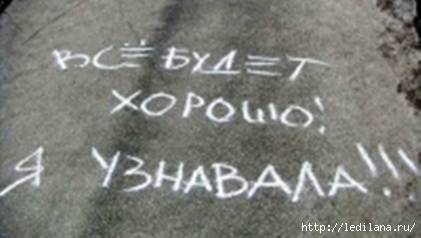 ВСЁ БУДЕТ
ХОРОШО!
Я УЗНАВАЛА!!!
http://ledilana.ru/